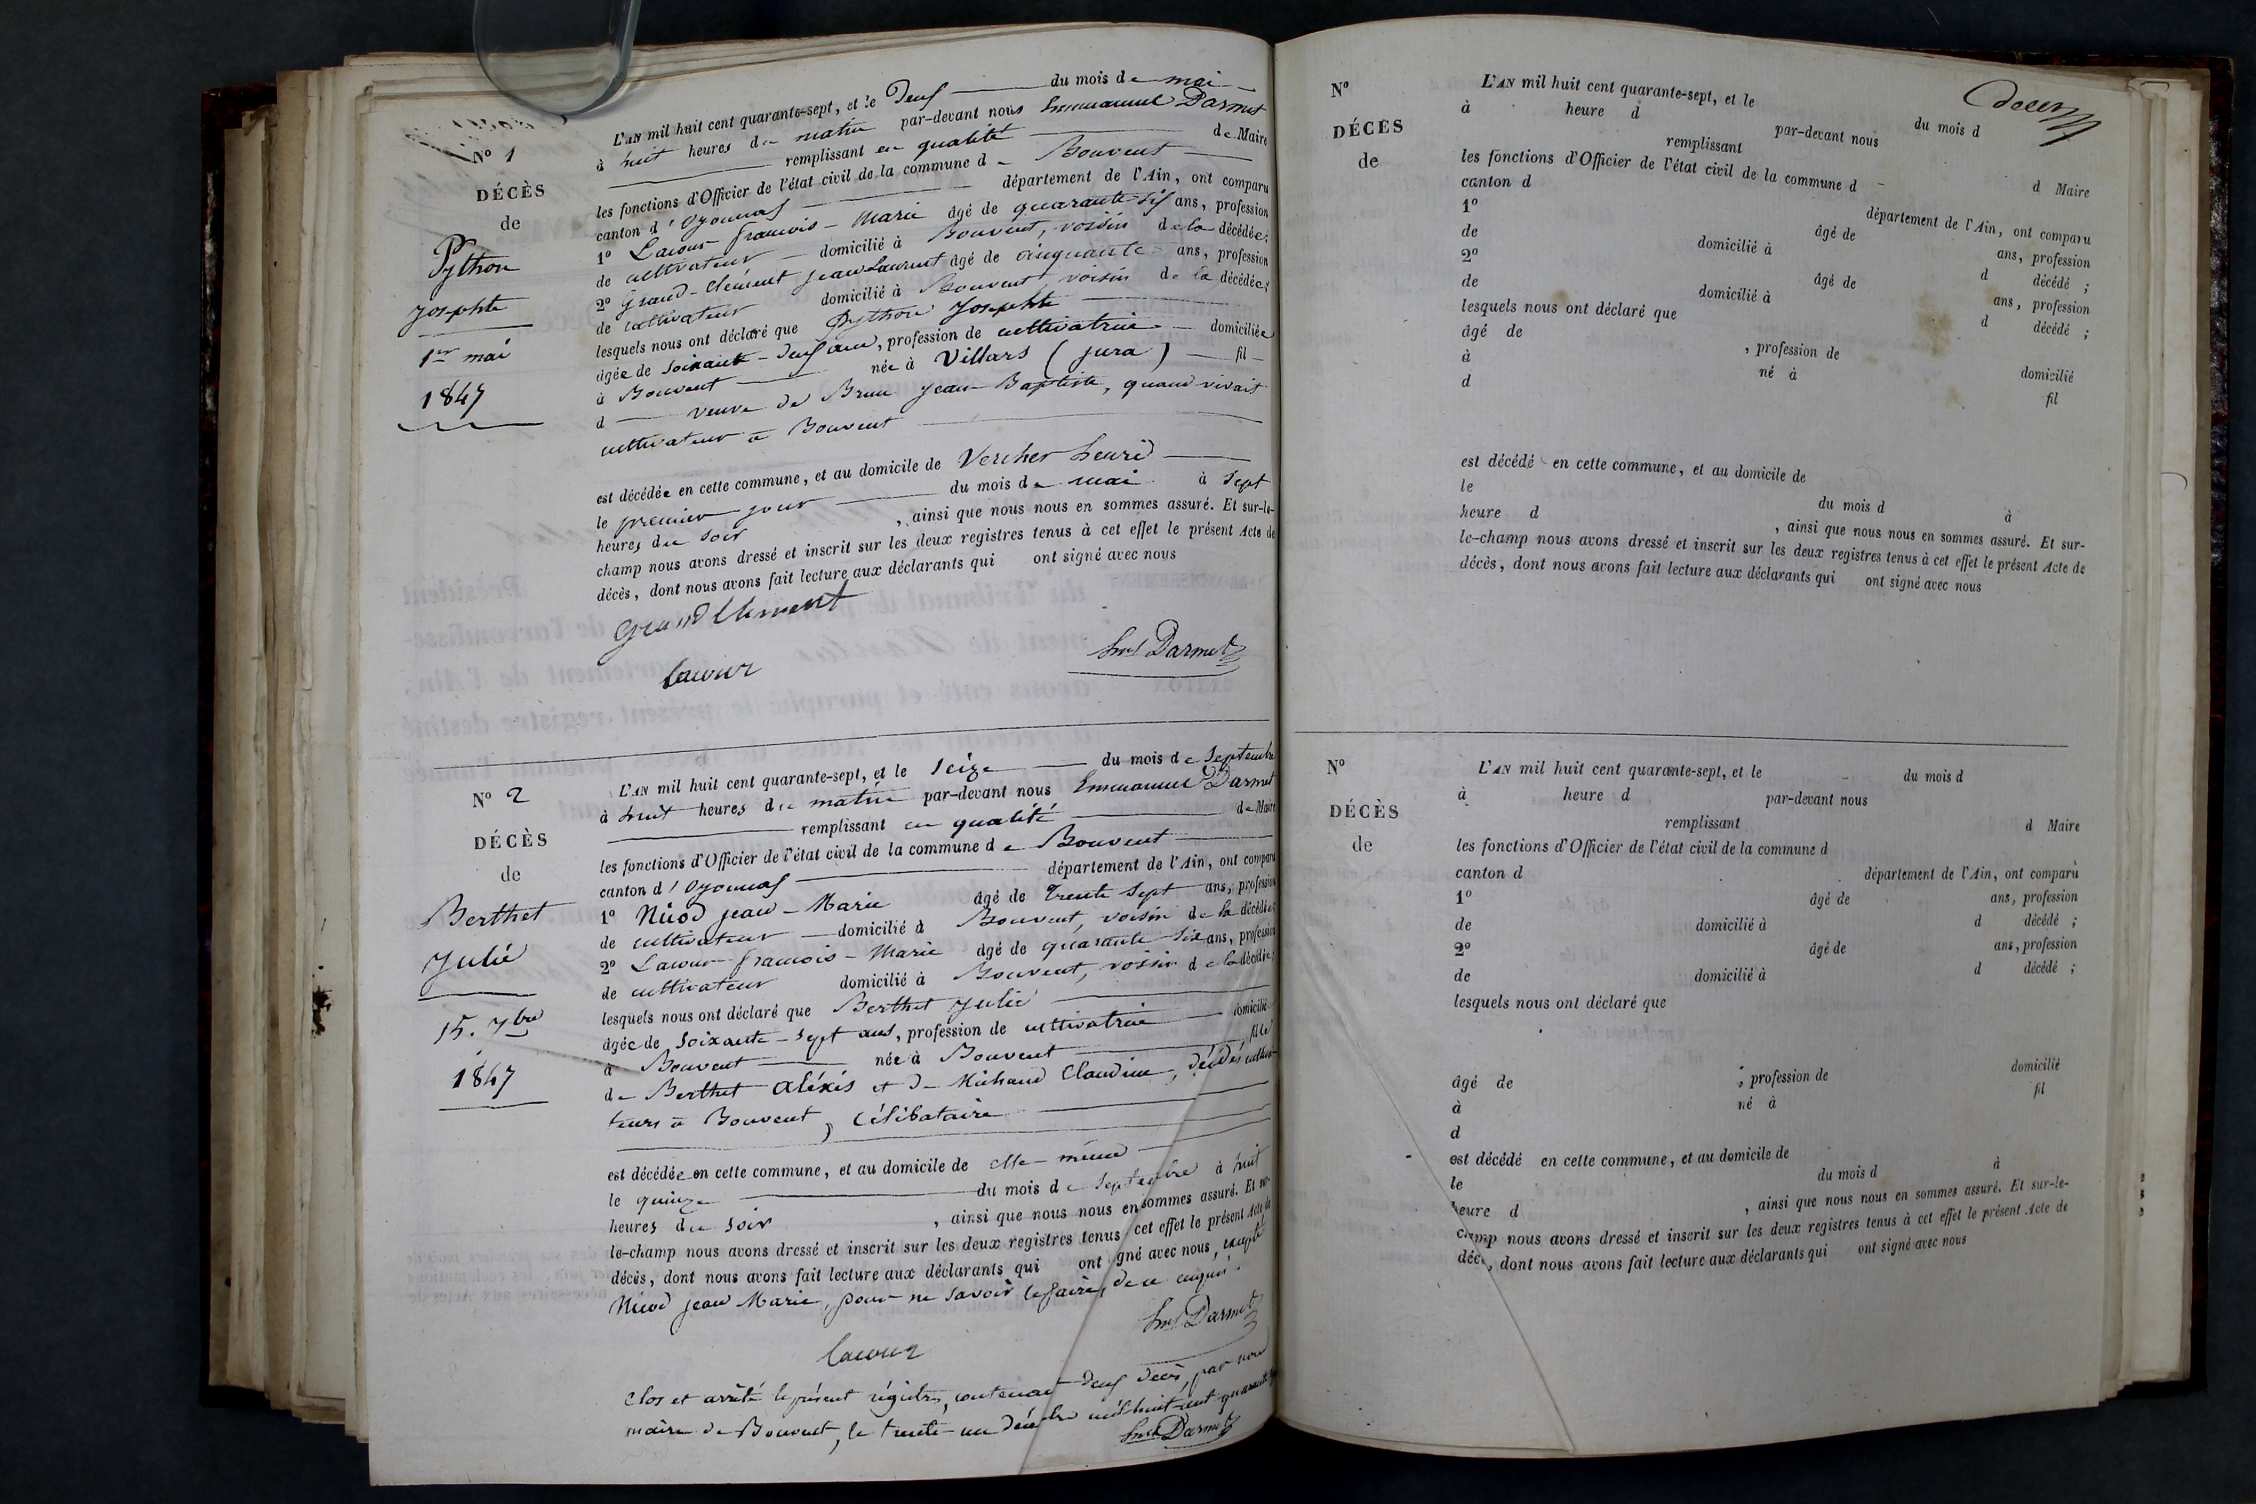 N° 1
DÉCÈS
de
Python
Josephte
1er mai
1847
L'AN mil huit cent quarante-sept, et le Deux du mois de mai
à huit heures du matin par-devant nous Emmanuel Darmet
remplissant en qualité de Maire
les fonctions d'Officier de l'état civil de la commune de Bouvent
canton d'Oyonnax département de l'Ain, ont comparu
1° Lacour françois-Marie âgé de quarante-six ans, profession
de cultivateur domicilié à Bouvent, voisin de la décédée;
2° Grand-Clément Jean Laurent âgé de cinquante ans, profession
de cultivateur domicilié à Bouvent, voisin de la décédée;
lesquels nous ont déclaré que Python Josephte
âgée de soixante-deux ans, profession de cultivatrice domiciliée
à Bouvent née à Villars (jura) fil
d veuve de Brun Jean-Baptiste, quand vivait
cultivateur à Bouvent
est décédée en cette commune, et au domicile de Vercher henri
le premier jour du mois de mai à sept
heures du soir, ainsi que nous nous en sommes assuré. Et sur-le-
champ nous avons dressé et inscrit sur les deux registres tenus à cet effet le présent Acte de
décès, dont nous avons fait lecture aux déclarants qui ont signé avec nous
Grand Clément
Lacour
Eml Darmet
N° 2
DÉCÈS
de
Berthet
Julie
15. 7bre
1847
L'AN mil huit cent quarante-sept, et le seize du mois de septembre
à huit heures du matin par-devant nous Emmanuel Darmet
remplissant en qualité de Maire
les fonctions d'Officier de l'état civil de la commune de Bouvent
canton d'Oyonnax département de l'Ain, ont comparu
1° Nicod jean-Marie âgé de trente sept ans, profession
de cultivateur domicilié à Bouvent, voisin de la décédée;
2° Lacour françois-Marie âgé de quarante six ans, profession
de cultivateur domicilié à Bouvent, voisin de la décédée;
lesquels nous ont déclaré que Berthet Julie
âgée de soixante-sept ans, profession de cultivatrice domiciliée
à Bouvent née à Bouvent fille
de Berthet Aléxis et de Michaud Claudine, décédés cultiva-
teurs à Bouvent, célibataire
est décédée en cette commune, et au domicile de elle-même
le quinze du mois de septembre à huit
heures du soir, ainsi que nous nous en sommes assuré. Et sur-
le-champ nous avons dressé et inscrit sur les deux registres tenus cet effet le présent Acte de
décès, dont nous avons fait lecture aux déclarants qui ont gné avec nous, excepté
Nicod jean Marie, pour ne savoir le faire, de ce enquis.
Eml Darmet
Lacour
Clos et arrêté le présent régistre, contenant deux décès, par nous
maire de Bouvent, le trente-un décembre mil huit cent quarante sept
Eml Darmet
N°
DÉCÈS
de
L'AN mil huit cent quarante-sept, et le du mois d
à heure d par-devant nous
remplissant d Maire
les fonctions d'Officier de l'état civil de la commune d
canton d département de l'Ain, ont comparu
1° âgé de ans, profession
de domicilié à d décédé;
2° âgé de ans, profession
de domicilié à d décédé;
lesquels nous ont déclaré que
âgé de, profession de domicilié
à né à fil
d
est décédé en cette commune, et au domicile de
le du mois d à
heure d, ainsi que nous nous en sommes assuré. Et sur-
le-champ nous avons dressé et inscrit sur les deux registres tenus à cet effet le présent Acte de
décès, dont nous avons fait lecture aux déclarants qui ont signé avec nous
N°
DÉCÈS
de
L'AN mil huit cent quarante-sept, et le du mois d
à heure d par-devant nous
remplissant d Maire
les fonctions d'Officier de l'état civil de la commune d
canton d département de l'Ain, ont comparu
1° âgé de ans, profession
de domicilié à d décédé;
2° âgé de ans, profession
de domicilié à d décédé;
lesquels nous ont déclaré que
âgé de, profession de domicilié
à né à fil
d
est décédé en cette commune, et au domicile de
le du mois d à
heure d, ainsi que nous nous en sommes assuré. Et sur-le-
champ nous avons dressé et inscrit sur les deux registres tenus à cet effet le présent Acte de
déc, dont nous avons fait lecture aux déclarants qui ont signé avec nous